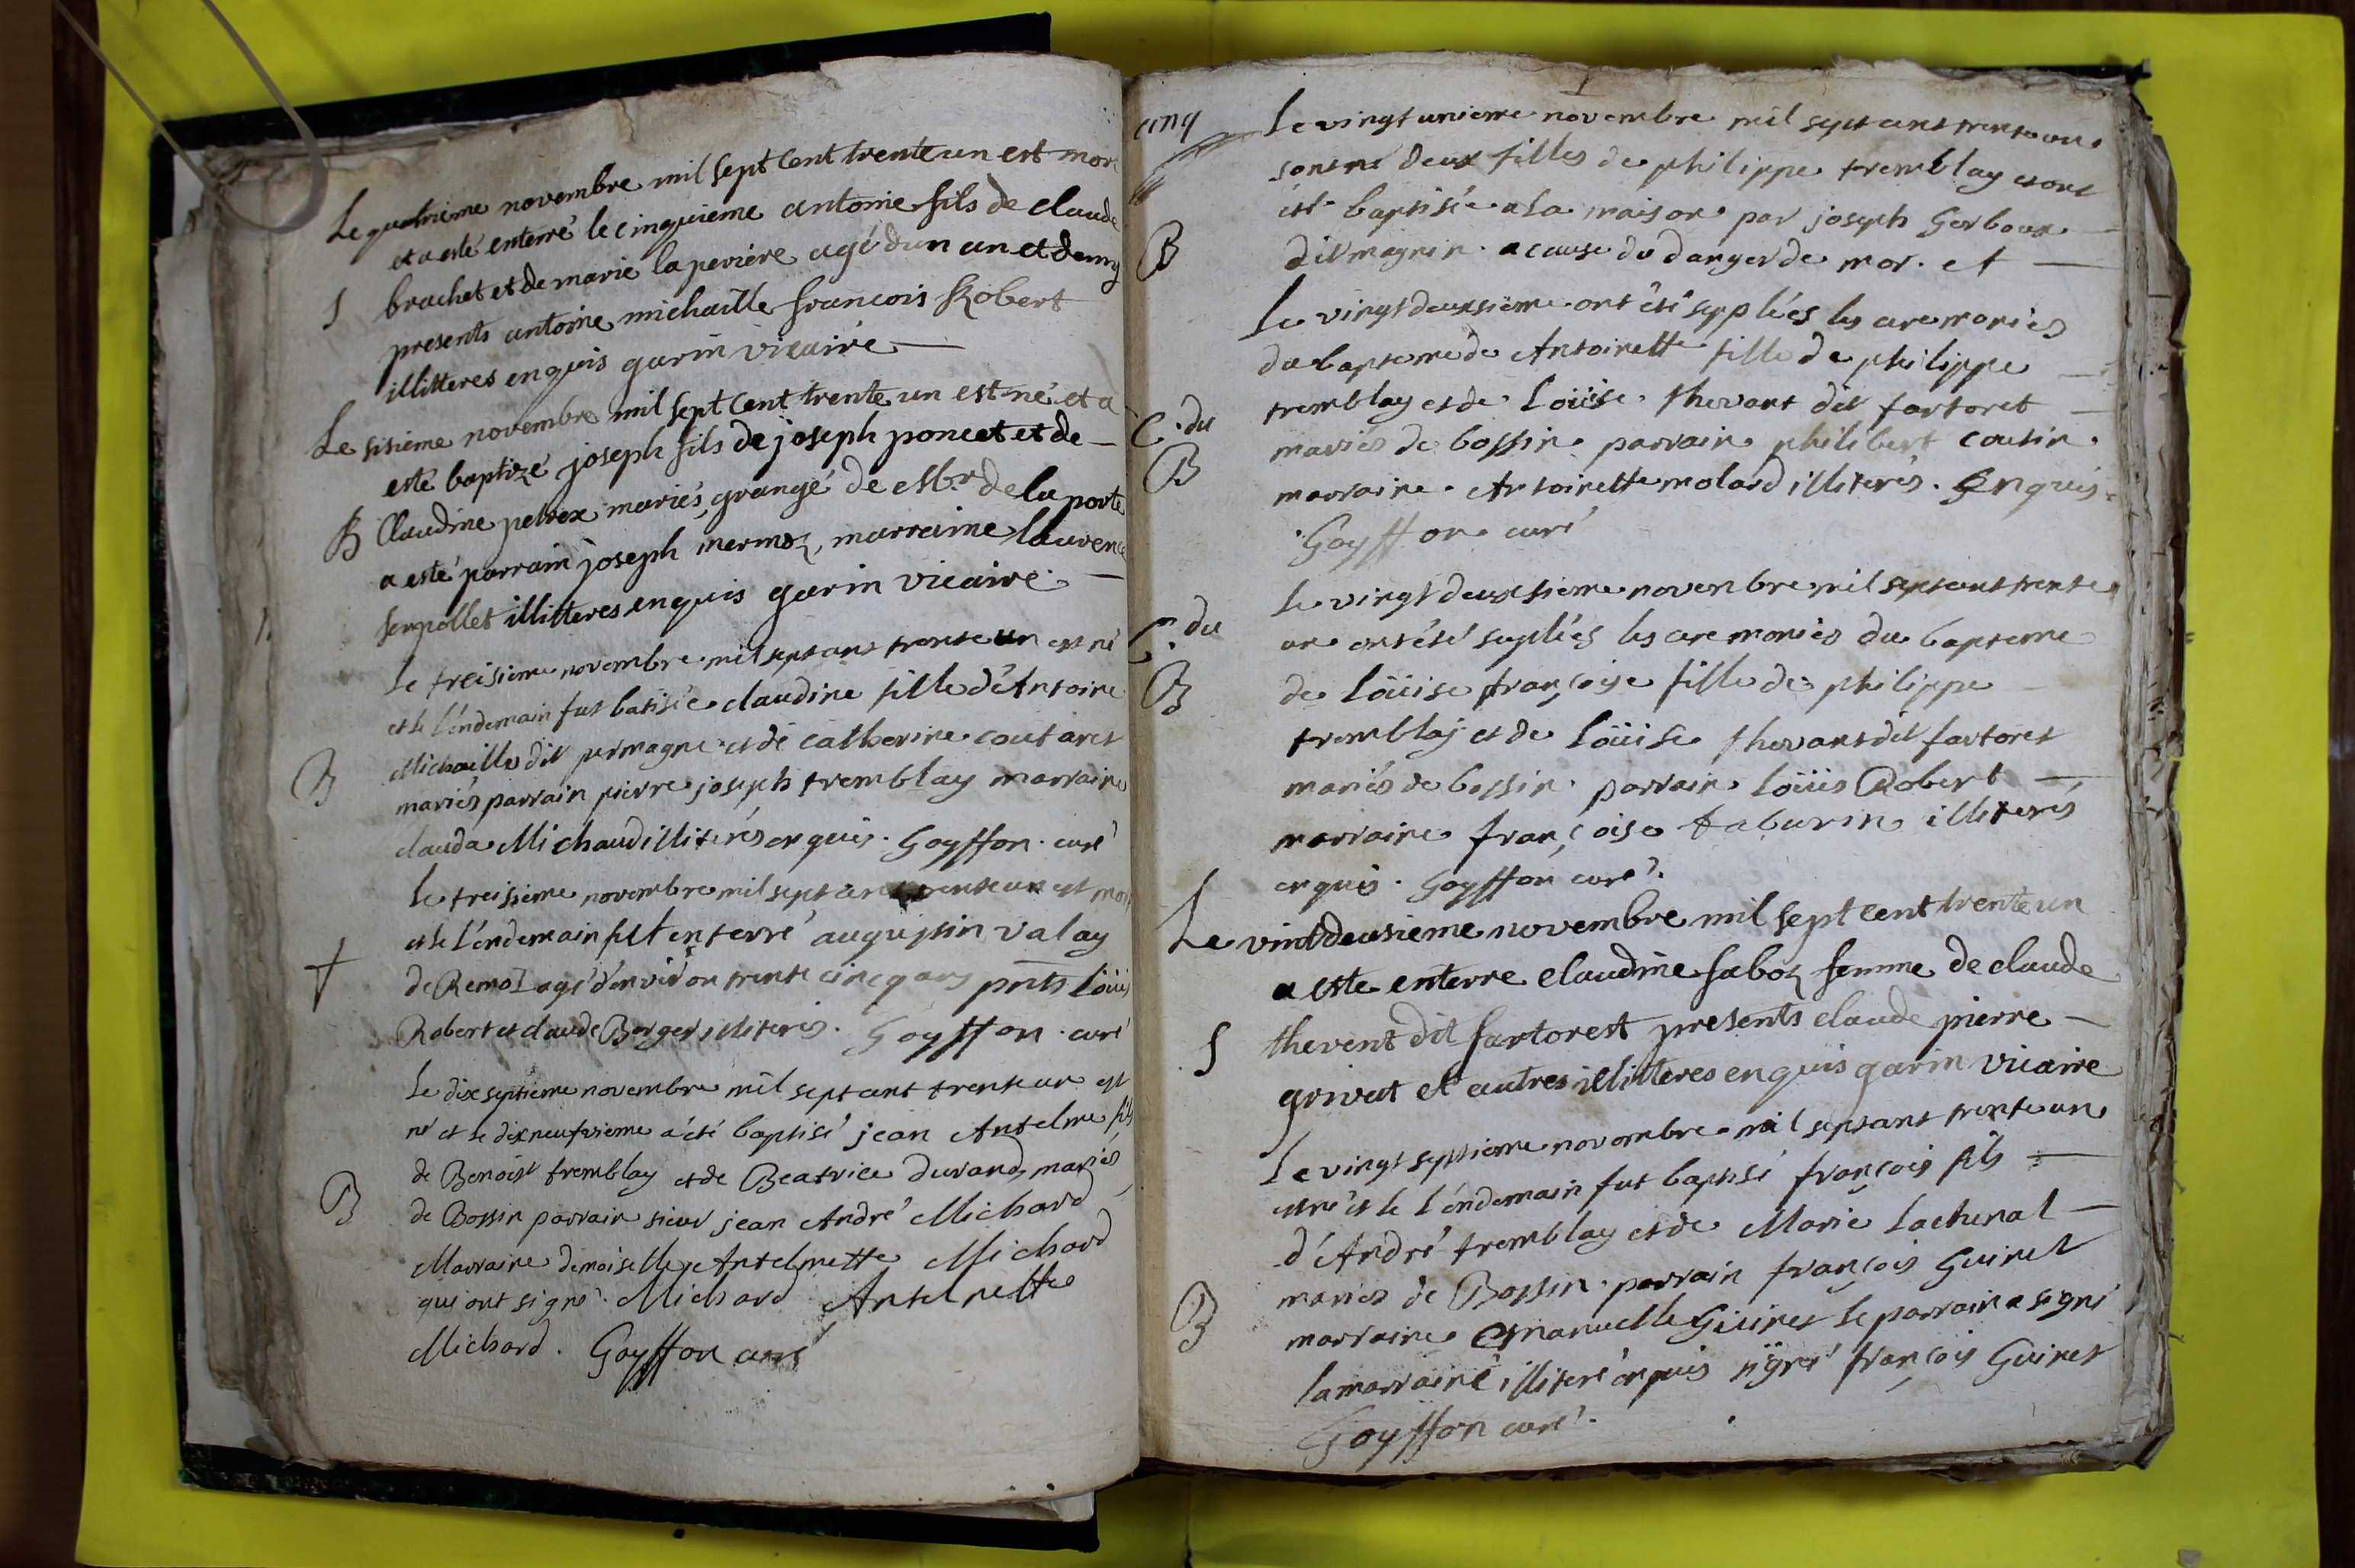 Le quatrieme novembre mil sept Cent trente un est mor
et a esté enterré le cinquieme antoine fils de claude
S brachet et de marie laperiere agé dun an et demy
presents antoine michaille francois Robert
illitteres enquis garin vicaire
Le sisieme novembre mil sept Cent trente un est né et a
esté baptizé joseph fils de joseph poncet et de
B Claudine peltex mariés, grangé de Mr de la porte
a esté parrain joseph mermoz, marraine laurence
serpollet illitteres enquis garin vicaire
Le treisieme novembre mil sept cent trente un est né
et le l'endemain fut batisée claudine fille d'Antoine
B Michaille dit permagne et de catherine coutaret
mariés parrain pierre joseph tremblay marraine
clauda Michaud illiterés enquis. Goyffon. curé
Le treisieme novembre mil sept cent trente un est mor
et le l'endemain fut enterré augustin valay
† de Remoz agé d'environ trente cinq ans pnts Loüis
Robert et claude Berger illiterés. Goyffon. curé
Le dix septieme novembre mil sept cent trente un est
né et le dix neufvieme a été baptisé jean Antelme fils
de Benoist tremblay et de Beatrice durand, mariés
B de Bossin parrain sieur jean André Michard
Marraine demoiselle Antelmette Michard
qui ont signé. Michard Antelmette
Michard. Goyffon curé
cinq
Le vingt unieme novembre mil sept cent trente un
sont né deux filles de philippe tremblay et ont
été baptisée a la maison par joseph Gerboux
B dit magnin a cause du danger de mor. et
Le vingt deuxsieme ont été supplées les ceremonies
du bapteme de Antoinette fille de philippe
C. du tremblay et de Loüise thevant dit fortoret
B mariés de bossin parrain philibert cousin
marraine Antoinette molard illiterés. Enquis
Goyffon curé
Le vingt deuxsieme novembre mil sept cent trente
C. du un ont été suplées les ceremonies du bapteme
B de loüise françoise fille de philippe
tremblay et de loüise thevant dit fortoret
mariés de bossin. parrain loüis Robert
marraine françoise taburin illiterés
enquis. Goyffon curé.
Le vintdeusieme novembre mil sept cent trente un
a este enterre claudine saboz femme de claude
S thevent dit fortorest presents claude pierre
grivat et autres illitteres enquis garin vicaire
Le vingt septieme novembre mil sept cent trente un
est né et le l'endemain fut baptisé françois fils
d'André tremblay et de Marie Lachenal
B mariés de Bossin. parrain françois Guinet
marraine emanuelle Guinet le parrain a signé
la marraine illiteré enquis signé françois Guinet
Goyffon curé.